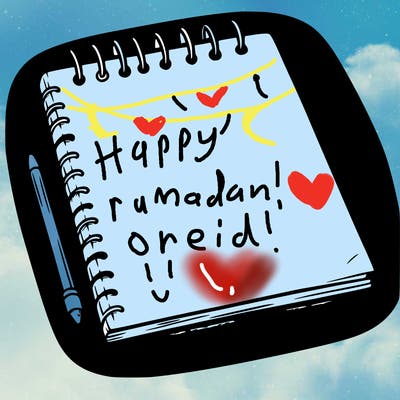 Happy
rumadan!
oreid!